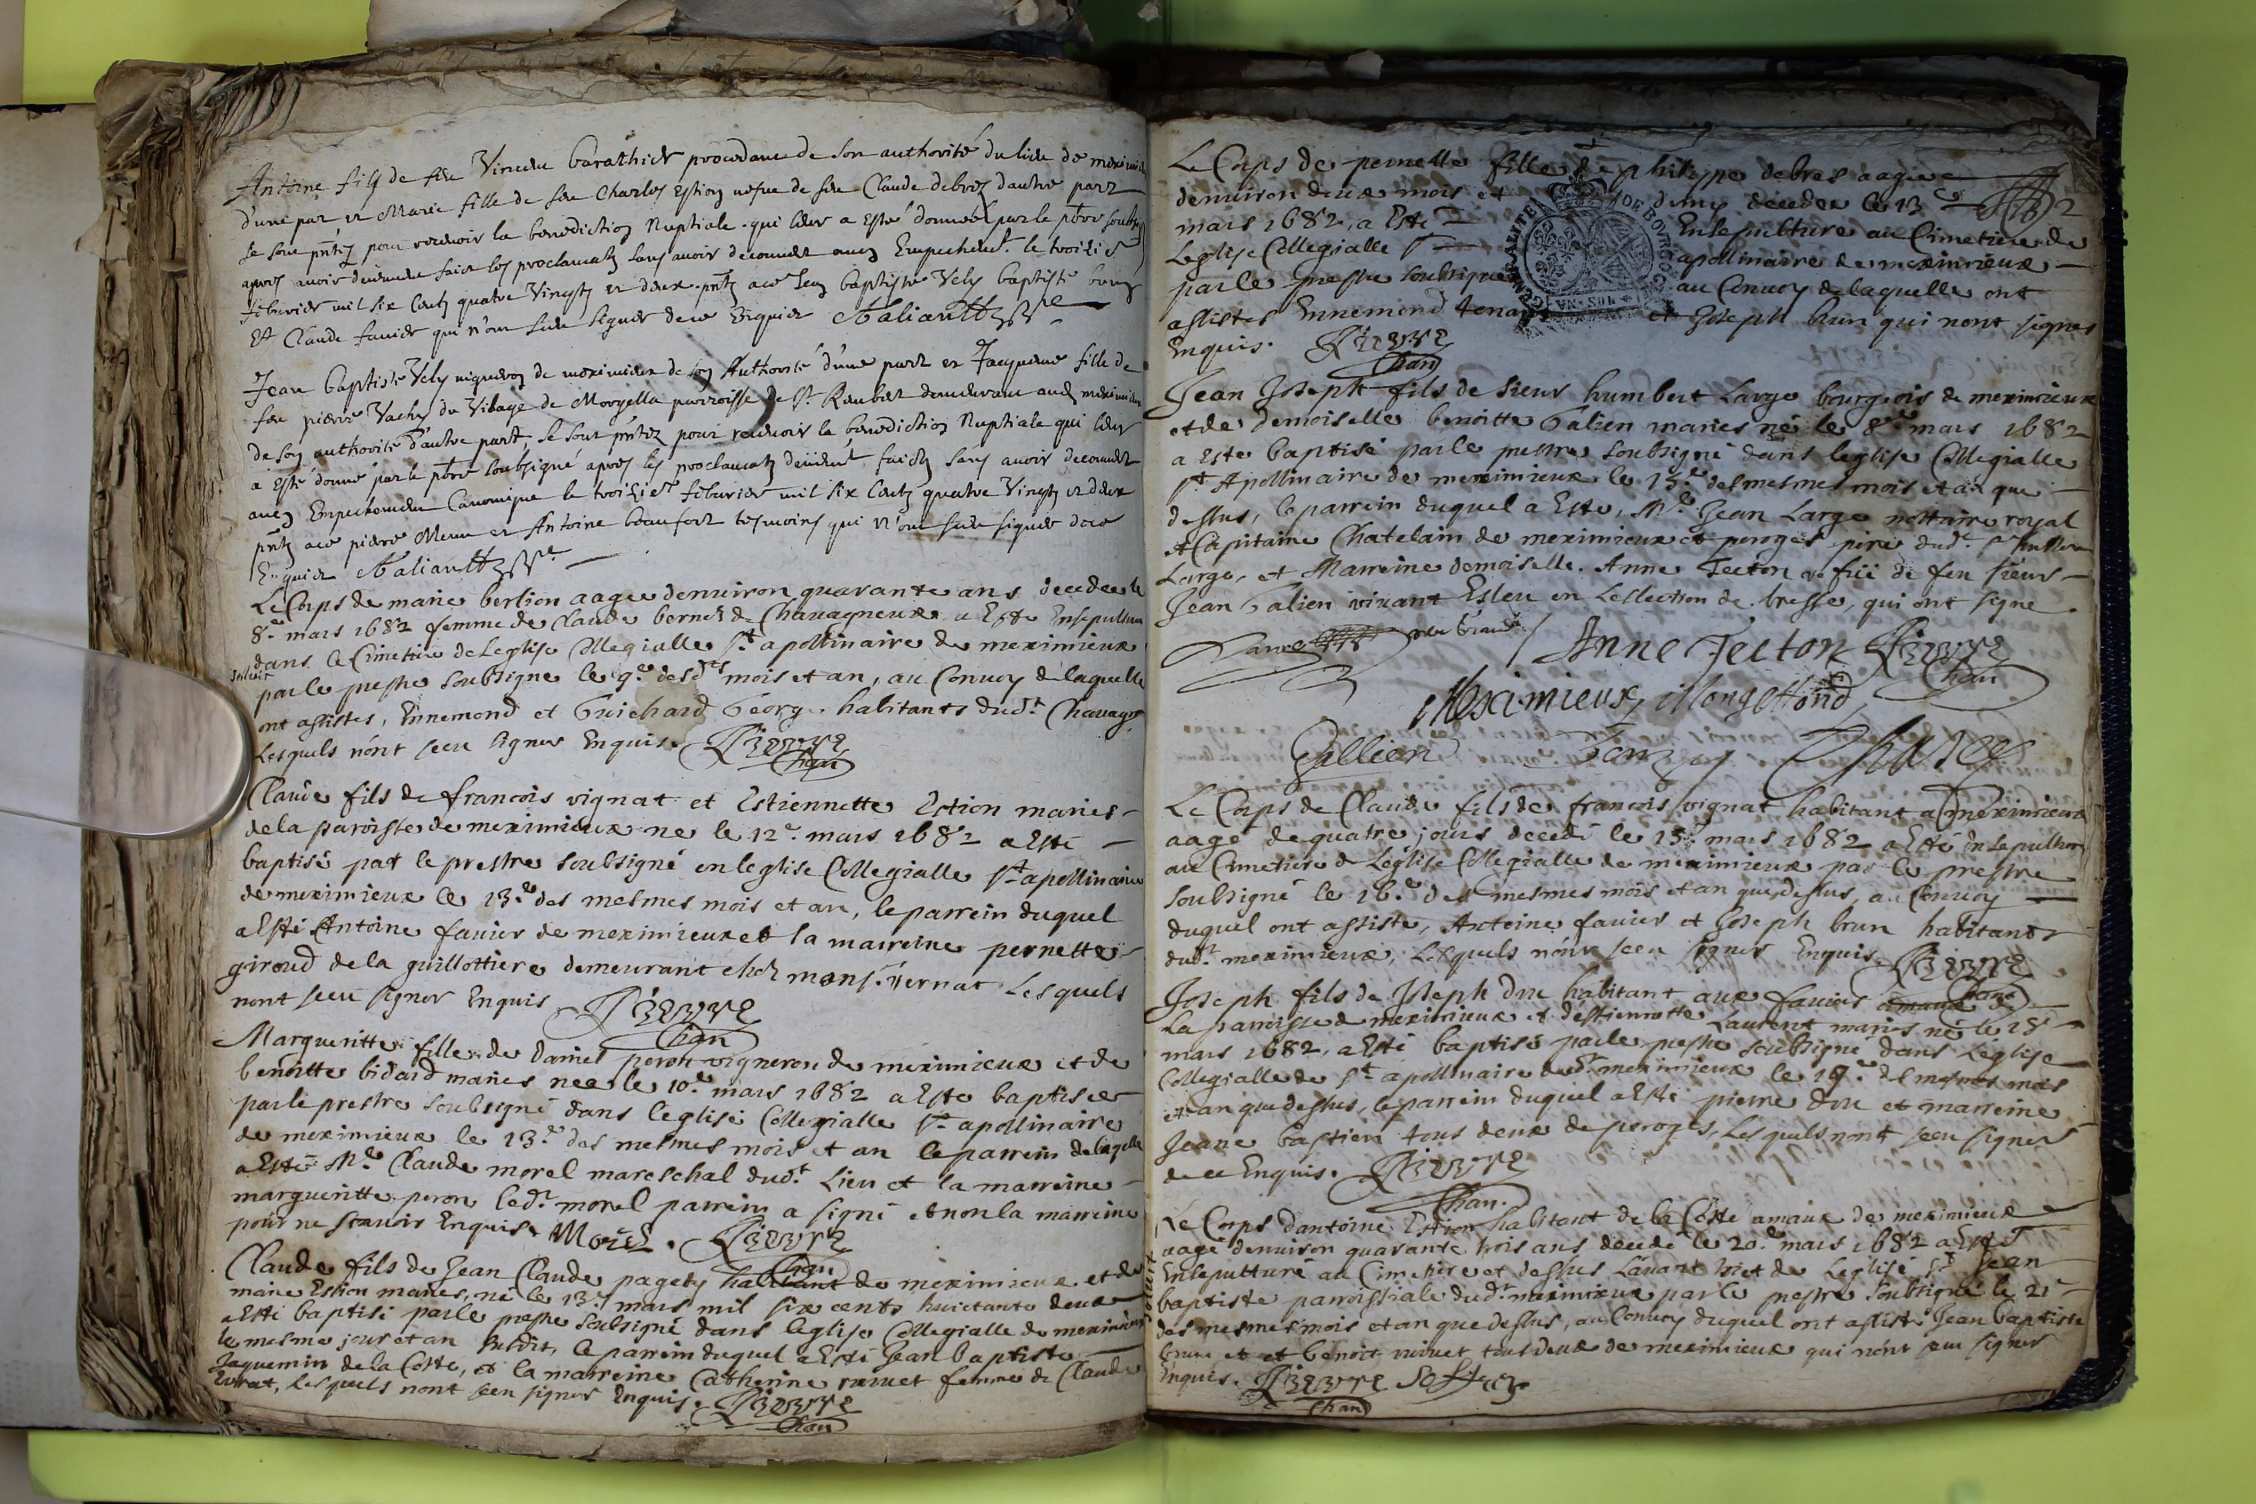 Antoine fils de feu Vincent barathier procedant de son authorité du lieu de meximieux
d'une part et Marie fille de feu Charles Estion vefue de feu Claude debres d'autre part
se sont pntez pour recevoir la benediction Nuptiale qui leur a esté donnée par le pbre soubsigné
apres avoir deuement faict les proclamatz sans avoir decouuert aucq Empechemt. le troizie
feburier mil six Centz quatre Vingtz et deux pntz a ce Jean baptiste Vely baptiste
Et Claude fauier qui n'ont sceu signer de ce Enquier
Jean baptiste Vely vigneron de meximieux de son Authorité d'une part et Jacqueme fille de
feu pierre Vachy du Vilage de Morgella parroisse de St. Rambert demeurant audt meximieux
de son authorité d'autre part, se sont pntez pour recevoir la benediction Nuptiale qui leur
a esté donné par le pbre soubsigné apres les proclamatz deuemt. faictz sans avoir decouuert
aucq Empechement Canonique le troizier feburier mil six Centz quatre Vingtz et deux
pntz a ce pierre et Antoine beaufort tesmoins qui n'ont sceu signer de ce
Enquier
Le Corps de marie berlion aagee denuiron quarante ans decedee le
8.e mars 1682 femme de Claude bernet de Chauagneux a Este Ensepulture
dans le Cimetiere de Leglise Collegialle St apollinaire de meximieux
par le prestre soubsigne le 9.e desdts mois et an, au Conuoy de laquelle
ont assistes, Ennemond et Guichard Georg. habitants dudt. Chauagn.
Lesquels nont sceu signer Enquis.
Chan
Claude fils de francois vignat et Estiennette Estion maries
de la paroisse de meximieux ne le 12.e mars 1682 a Esté
baptisé par le prestre soubsigné en leglise Collegialle St apollinaire
de meximieux le 13.e des mesmes mois et an, le parrein duquel
a Esté Antoine fauier de meximieux et la marreine pernette
giroud de la guillottiere demeurant chez mons.r vernat Lesquels
nont sceu signer Enquis
Chan
Margueritte fille de Daniel peron vigneron de meximieux et de
benoitte bidard maries nee le 10.e mars 1682 a Este baptisee
par le prestre soubsigné dans leglise Collegialle St apollinaire
de meximieux le 13.e des mesmes mois et an le parrein de laqelle
a Esté M.e Claude morel mareschal dudt. Lieu et la marreine
margueritte peron ledt. morel parrein a signé et non la marreine
pour ne scauoir Enquis. Morel.
Chan
Claude fils de Jean Claude pagety habitant de meximieux et de
marie Estion maries, né le 13.e mars mil six cents huictante deux
a Esté baptisé par le prestre soubsigné dans leglise Collegialle de meximieux
le mesme jour et an susdit, le parrein duquel a Esté Jean baptiste
Jaquemin de la Coste, et la marreine Catherine vuiuet femme de Claude
, lesquels nont sceu signer Enquis.
Chan
Le Corps de pernette fille de philippe debres aagée
denuiron deux mois et demy decedee le 13.e
mars 1682, a Esté Ensepulture au Cimetiere de
Leglise Collegialle St apollinaire de meximieux
par le prestre soubsigné au Conuoy de laquelle ont
assistes Ennemond et Joseph brun qui nont signes
Enquis.
Chan
GENERALITE DE BOVRGOGNE
VN·SOL
Jean Joseph fils de sieur humbert Large bourgeois de meximieux
et de demoiselle benoitte Galien maries né le 8.e mars 1682
a Este baptisé par le prestre soubsigné dans leglise Collegialle
St Apollinaire de meximieux le 15.e des mesmes mois et an que
dessus, le parrein duquel a Este, M.e Jean Large nottaire royal
et Capitaine Chatelain de meximieux et peroges pere dudt.
Large, et Marreine demoiselle Anne Tecton vefue de feu sieur
Jean Galien viuant Esleu en Leslection de bresse, qui ont signe.
Anne Tecton
Chan
Meximieux
Gallien
Le Corps de Claude fils de francois vignat habitant a meximieux
aagé de quatre jours decedé le 15.e mars 1682 a Esté Ensepulturé
au Cimetiere de Leglise Collegialle de meximieux par le prestre
soubsigné le 16.e des mesmes mois et an que dessus, au Conuoy
duquel ont assisté, Antoine fauier et Joseph brun habitants
dudt. meximieux, Lesquels nont sceu signer Enquis.
Chan
Joseph fils de Joseph Dru habitant aux fauiers de
la parroisse de meximieux et destiennette Laurent maries né le 18
mars 1682, a Esté baptisé par le prestre soubsigné dans leglise
Collegialle de St apollinaire dudt. meximieux le 19.e des mesmes mois
et an que dessus, le parrein duquel a Esté pierre Dru et marreine
Jeane bastien tous deux de peroges, Lesquels nont sceu signer
de ce Enquis.
Chan.
Le Corps dantoine Estion habitant de la Coste amaux de meximieux
aagé denuiron quarante trois ans decedé le 20.e mars 1682 a Esté
Ensepulturé au Cimetiere et dessus Lauant toict de Leglise St Jean
baptiste parroissiale dudt. meximieux par le prestre soubsigné le 21
des mesmes mois et an que dessus, au Conuoy duquel ont assisté Jean baptiste
et benoit vuiuet tous deux de meximieux qui nont sceu signer
Enquis.
Chan